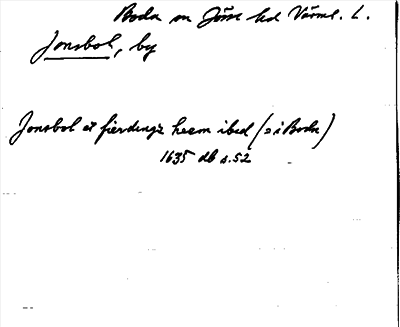 Boda sn Jösse hd Värml. L.
Jonsbol, by
Jonsbol et fierding'z heem ibid (ɔ: i Boda)
1635 db s. 52